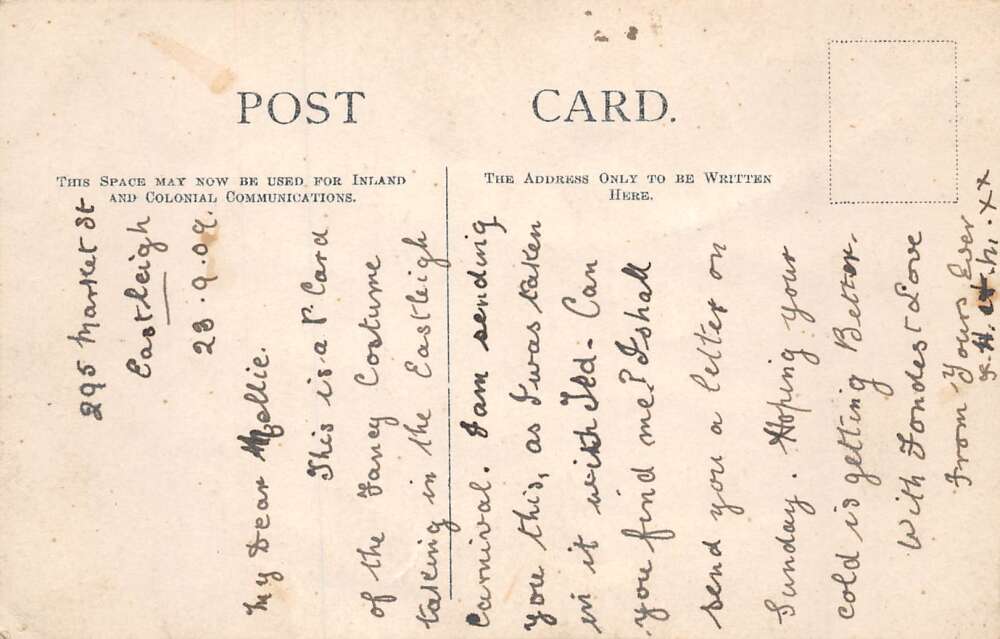 POST CARD.
THIS SPACE MAY NOW BE USED FOR INLAND
AND COLONIAL COMMUNICATIONS.
THE ADDRESS ONLY TO BE WRITTEN
HERE.
295 Market St
Eastleigh
23.9.09.
My Dear Mellie.
This is a P Card
of the Fancy Costume
taking in the Eastleigh
Carnival. I am sending
you this, as I was taken
in it with Ted - Can
you find me? I shall
send you a letter on
Sunday. Hoping your
cold is getting Better.
With Fondest Love
From Yours Ever
xx